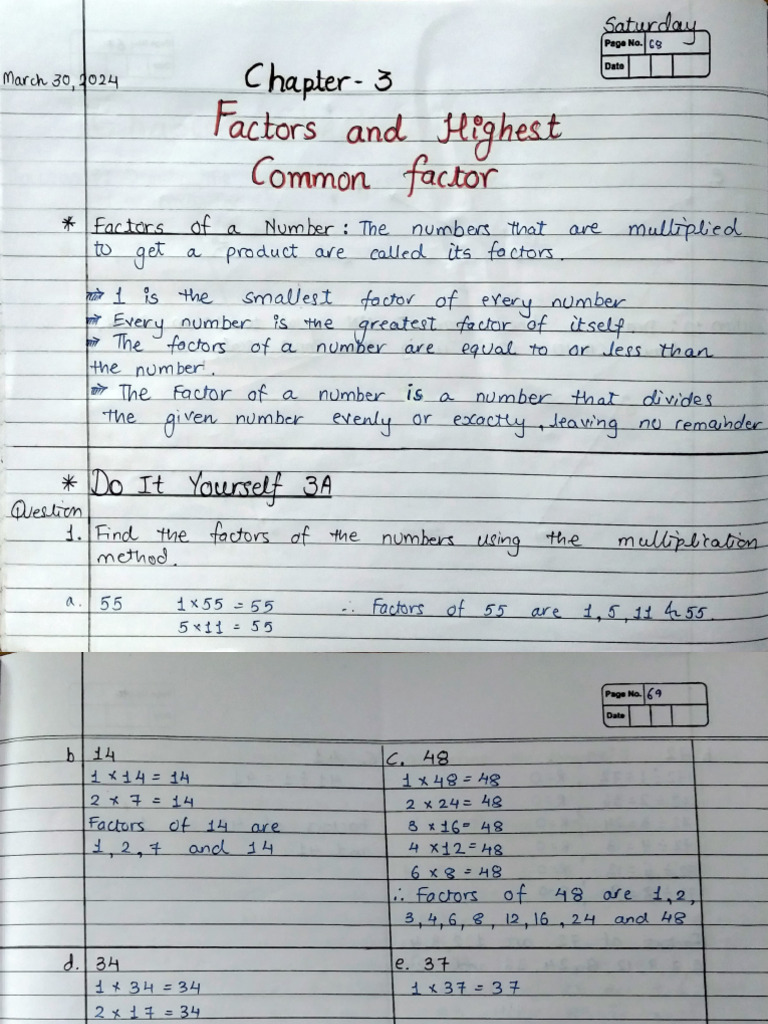 Saturday
Page No. 68
Date
March 30, 2024
Chapter - 3
Factors and Highest
Common factor
* Factors of a Number : The numbers that are multiplied
to get a product are called its factors.
⇒ 1 is the smallest factor of every number
⇒ Every number is the greatest factor of itself.
⇒ The factors of a number are equal to or less than
the number.
⇒ The Factor of a number is a number that divides
the given number evenly or exactly, leaving no remainder
* Do It Yourself 3A
Question
1. Find the factors of the numbers using the multiplication
method.
a. 55 1 × 55 = 55 ∴ Factors of 55 are 1, 5, 11 & 55.
5 × 11 = 55
Page No. 69
Date
b 14
1 × 14 = 14
2 × 7 = 14
Factors of 14 are
1, 2, 7 and 14
C. 48
1 × 48 = 48
2 × 24 = 48
3 × 16 = 48
4 × 12 = 48
6 × 8 = 48
∴ Factors of 48 are 1, 2,
3, 4, 6, 8, 12, 16, 24 and 48
d. 34
1 × 34 = 34
2 × 17 = 34
e. 37
1 × 37 = 37